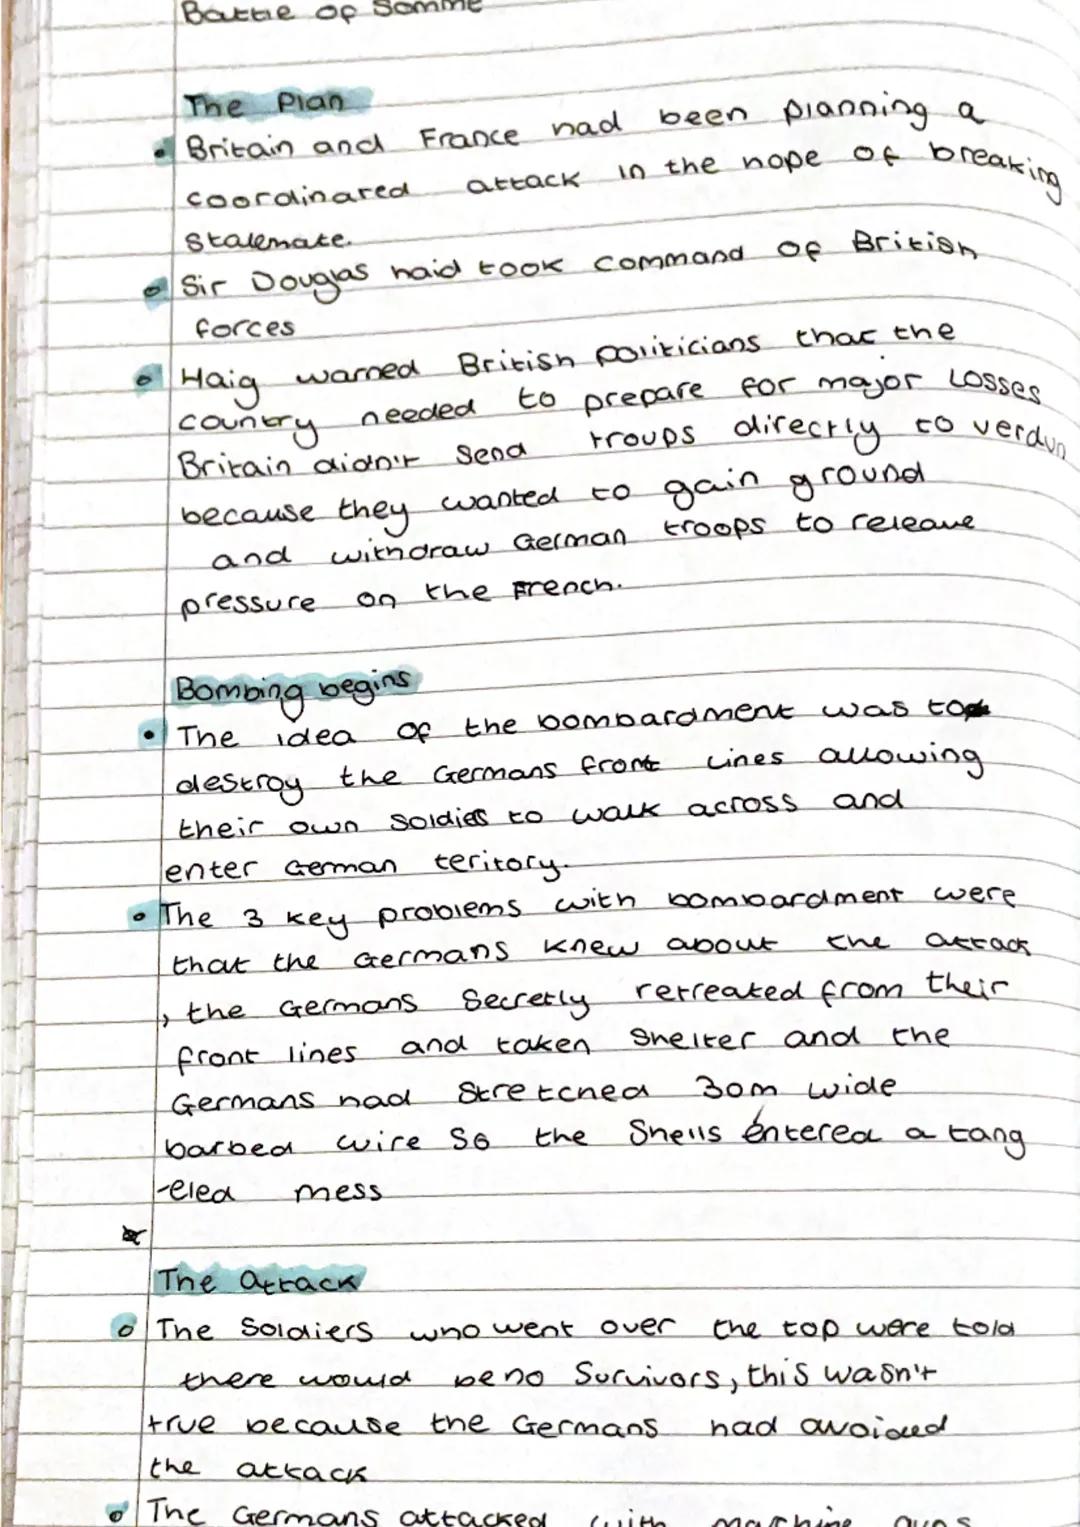 Battle of Somme
The Plan
• Britain and France had been planning a
coordinared attack in the hope of breaking
Stalemate.
• Sir Douglas haid took command of British
forces
• Haig warned British politicians that the
country needed to prepare for major losses
Britain didn't send troups directly to verdun
because they wanted to gain ground
and withdraw German troops to releave
pressure on the French.
Bombing begins
• The idea of the bombardment was to
destroy the Germans front lines allowing
their own soldies to walk across and
enter German teritory.
• The 3 key problems with bombardment were
that the Germans knew about the attack
, the Germans Secretly retreated from their
front lines and taken Shelter and the
Germans had Stretched 30m wide
barbed wire So the Shells entered a tang
-eled mess
The attack
• The Soldiers who went over the top were told
there would be no Survivors, this wasn't
true because the Germans had avoided
the attack
• The Germans attacked with machine guns